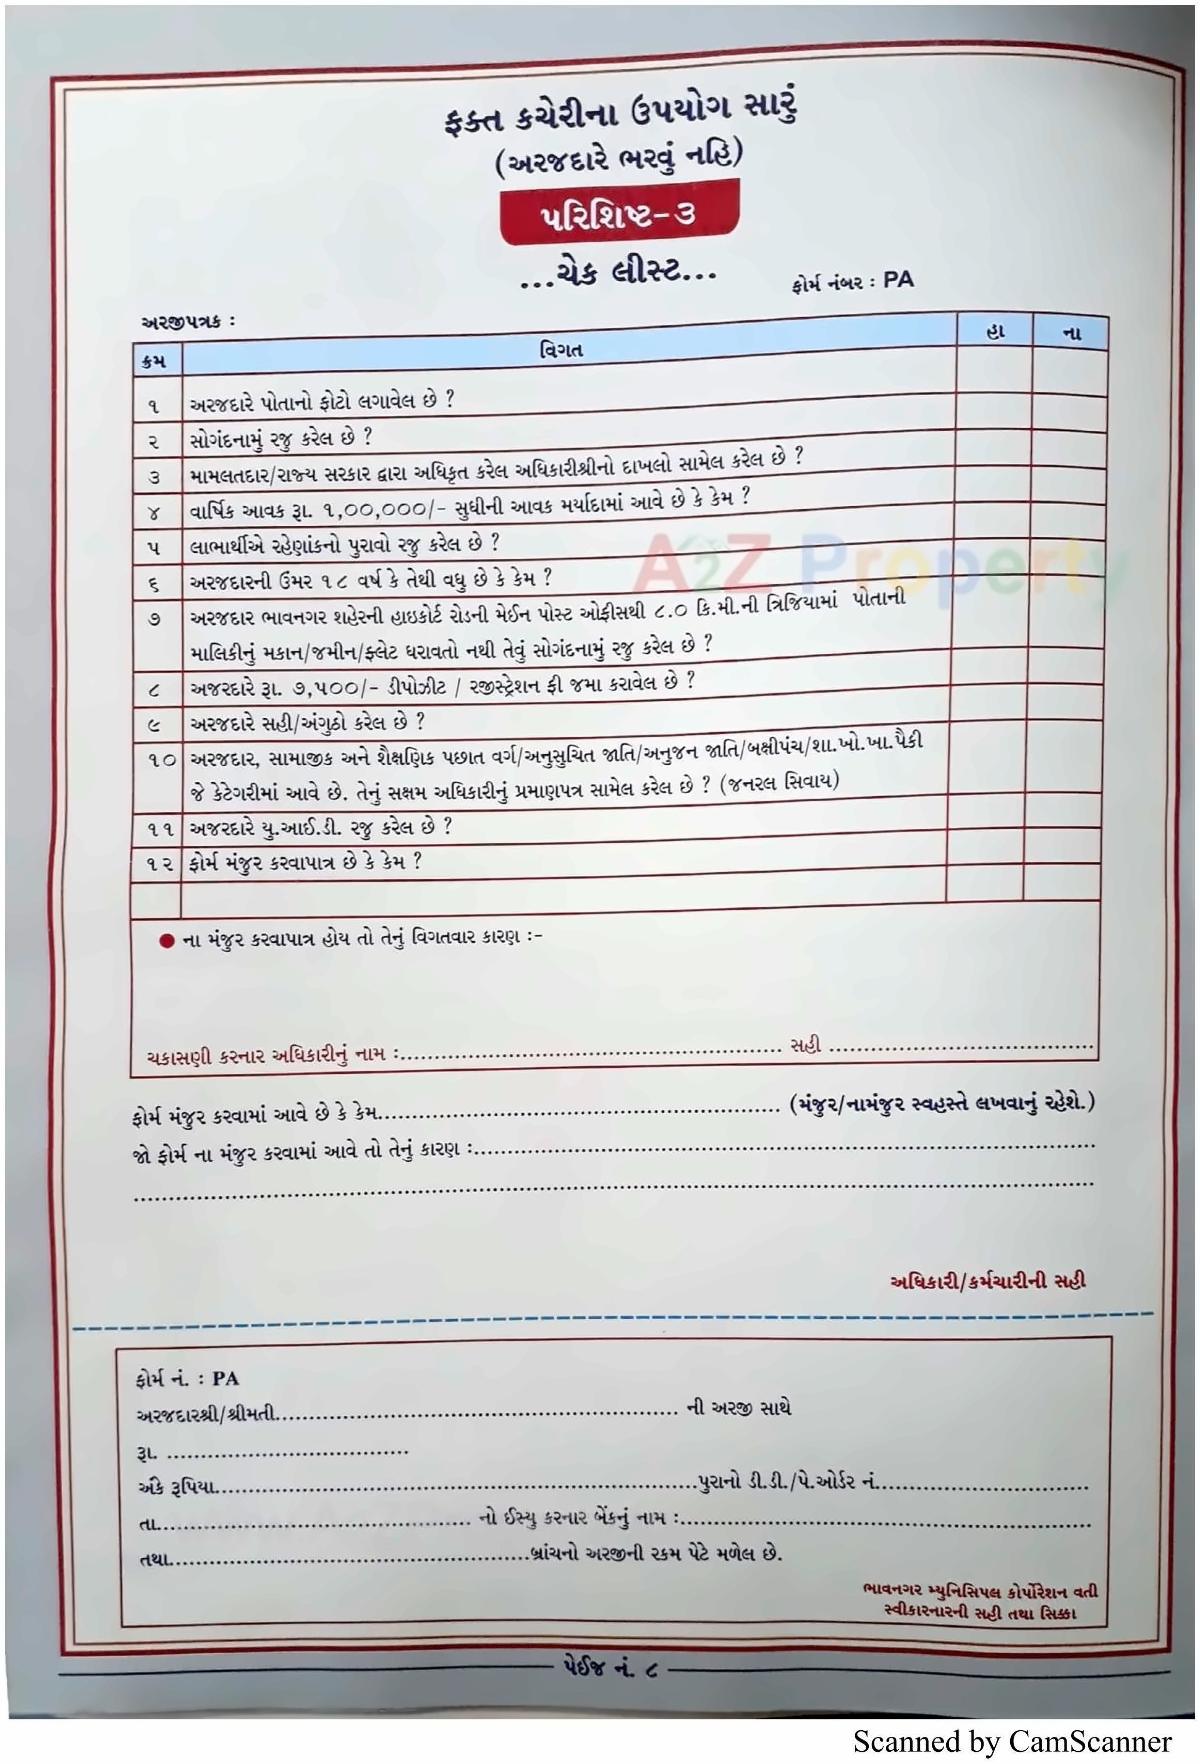 ફક્ત કચેરીના ઉપયોગ સારું
(અરજદારે ભરવું નહિ)
પરિશિષ્ટ-૩
...ચેક લીસ્ટ...
ફોર્મ નંબર : PA
અરજીપત્રક :
ક્રમ વિગત હા ના
૧ અરજદારે પોતાનો ફોટો લગાવેલ છે ?
૨ સોગંદનામું રજુ કરેલ છે ?
૩ મામલતદાર/રાજ્ય સરકાર દ્વારા અધિકૃત કરેલ અધિકારીશ્રીનો દાખલો સામેલ કરેલ છે ?
૪ વાર્ષિક આવક રૂા. ૧,૦૦,૦૦૦/- સુધીની આવક મર્યાદામાં આવે છે કે કેમ ?
૫ લાભાર્થીએ રહેણાંકનો પુરાવો રજુ કરેલ છે ?
A2Z Property
૬ અરજદારની ઉંમર ૧૮ વર્ષ કે તેથી વધુ છે કે કેમ ?
૭ અરજદાર ભાવનગર શહેરની હાઇકોર્ટ રોડની મેઈન પોસ્ટ ઓફીસથી ૮.૦ કિ.મી.ની ત્રિજિયામાં પોતાની
માલિકીનું મકાન/જમીન/ફ્લેટ ધરાવતો નથી તેવું સોગંદનામું રજુ કરેલ છે ?
૮ અજરદારે રૂા. ૭,૫૦૦/- ડીપોઝીટ / રજીસ્ટ્રેશન ફી જમા કરાવેલ છે ?
૯ અરજદારે સહી/અંગુઠો કરેલ છે ?
૧૦ અરજદાર, સામાજીક અને શૈક્ષણિક પછાત વર્ગ/અનુસુચિત જાતિ/અનુજન જાતિ/બક્ષીપંચ/શા.ખો.ખા.પૈકી
જે કેટેગરીમાં આવે છે. તેનું સક્ષમ અધિકારીનું પ્રમાણપત્ર સામેલ કરેલ છે ? (જનરલ સિવાય)
૧૧ અજરદારે યુ.આઈ.ડી. રજુ કરેલ છે ?
૧૨ ફોર્મ મંજુર કરવાપાત્ર છે કે કેમ ?
● ના મંજુર કરવાપાત્ર હોય તો તેનું વિગતવાર કારણ :-
ચકાસણી કરનાર અધિકારીનું નામ :.................................................... સહી ....................................
ફોર્મ મંજુર કરવામાં આવે છે કે કેમ....................................................... (મંજુર/નામંજુર સ્વહસ્તે લખવાનું રહેશે.)
જો ફોર્મ ના મંજુર કરવામાં આવે તો તેનું કારણ :.....................................................................................
....................................................................................................................................
અધિકારી/કર્મચારીની સહી
ફોર્મ નં. : PA
અરજદારશ્રી/શ્રીમતી....................................................... ની અરજી સાથે
રૂા. .................................
અંકે રૂપિયા..................................................................પુરાનો ડી.ડી./પે.ઓર્ડર નં..............................
તા........................................... નો ઈસ્યુ કરનાર બેંકનું નામ :........................................................
તથા.................................................બ્રાંચનો અરજીની રકમ પેટે મળેલ છે.
ભાવનગર મ્યુનિસિપલ કોર્પોરેશન વતી
સ્વીકારનારની સહી તથા સિક્કા
પેઈજ નં. ૮
Scanned by CamScanner